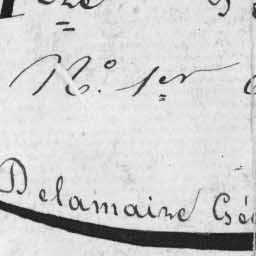 N.º 1er
Delamaire Gé